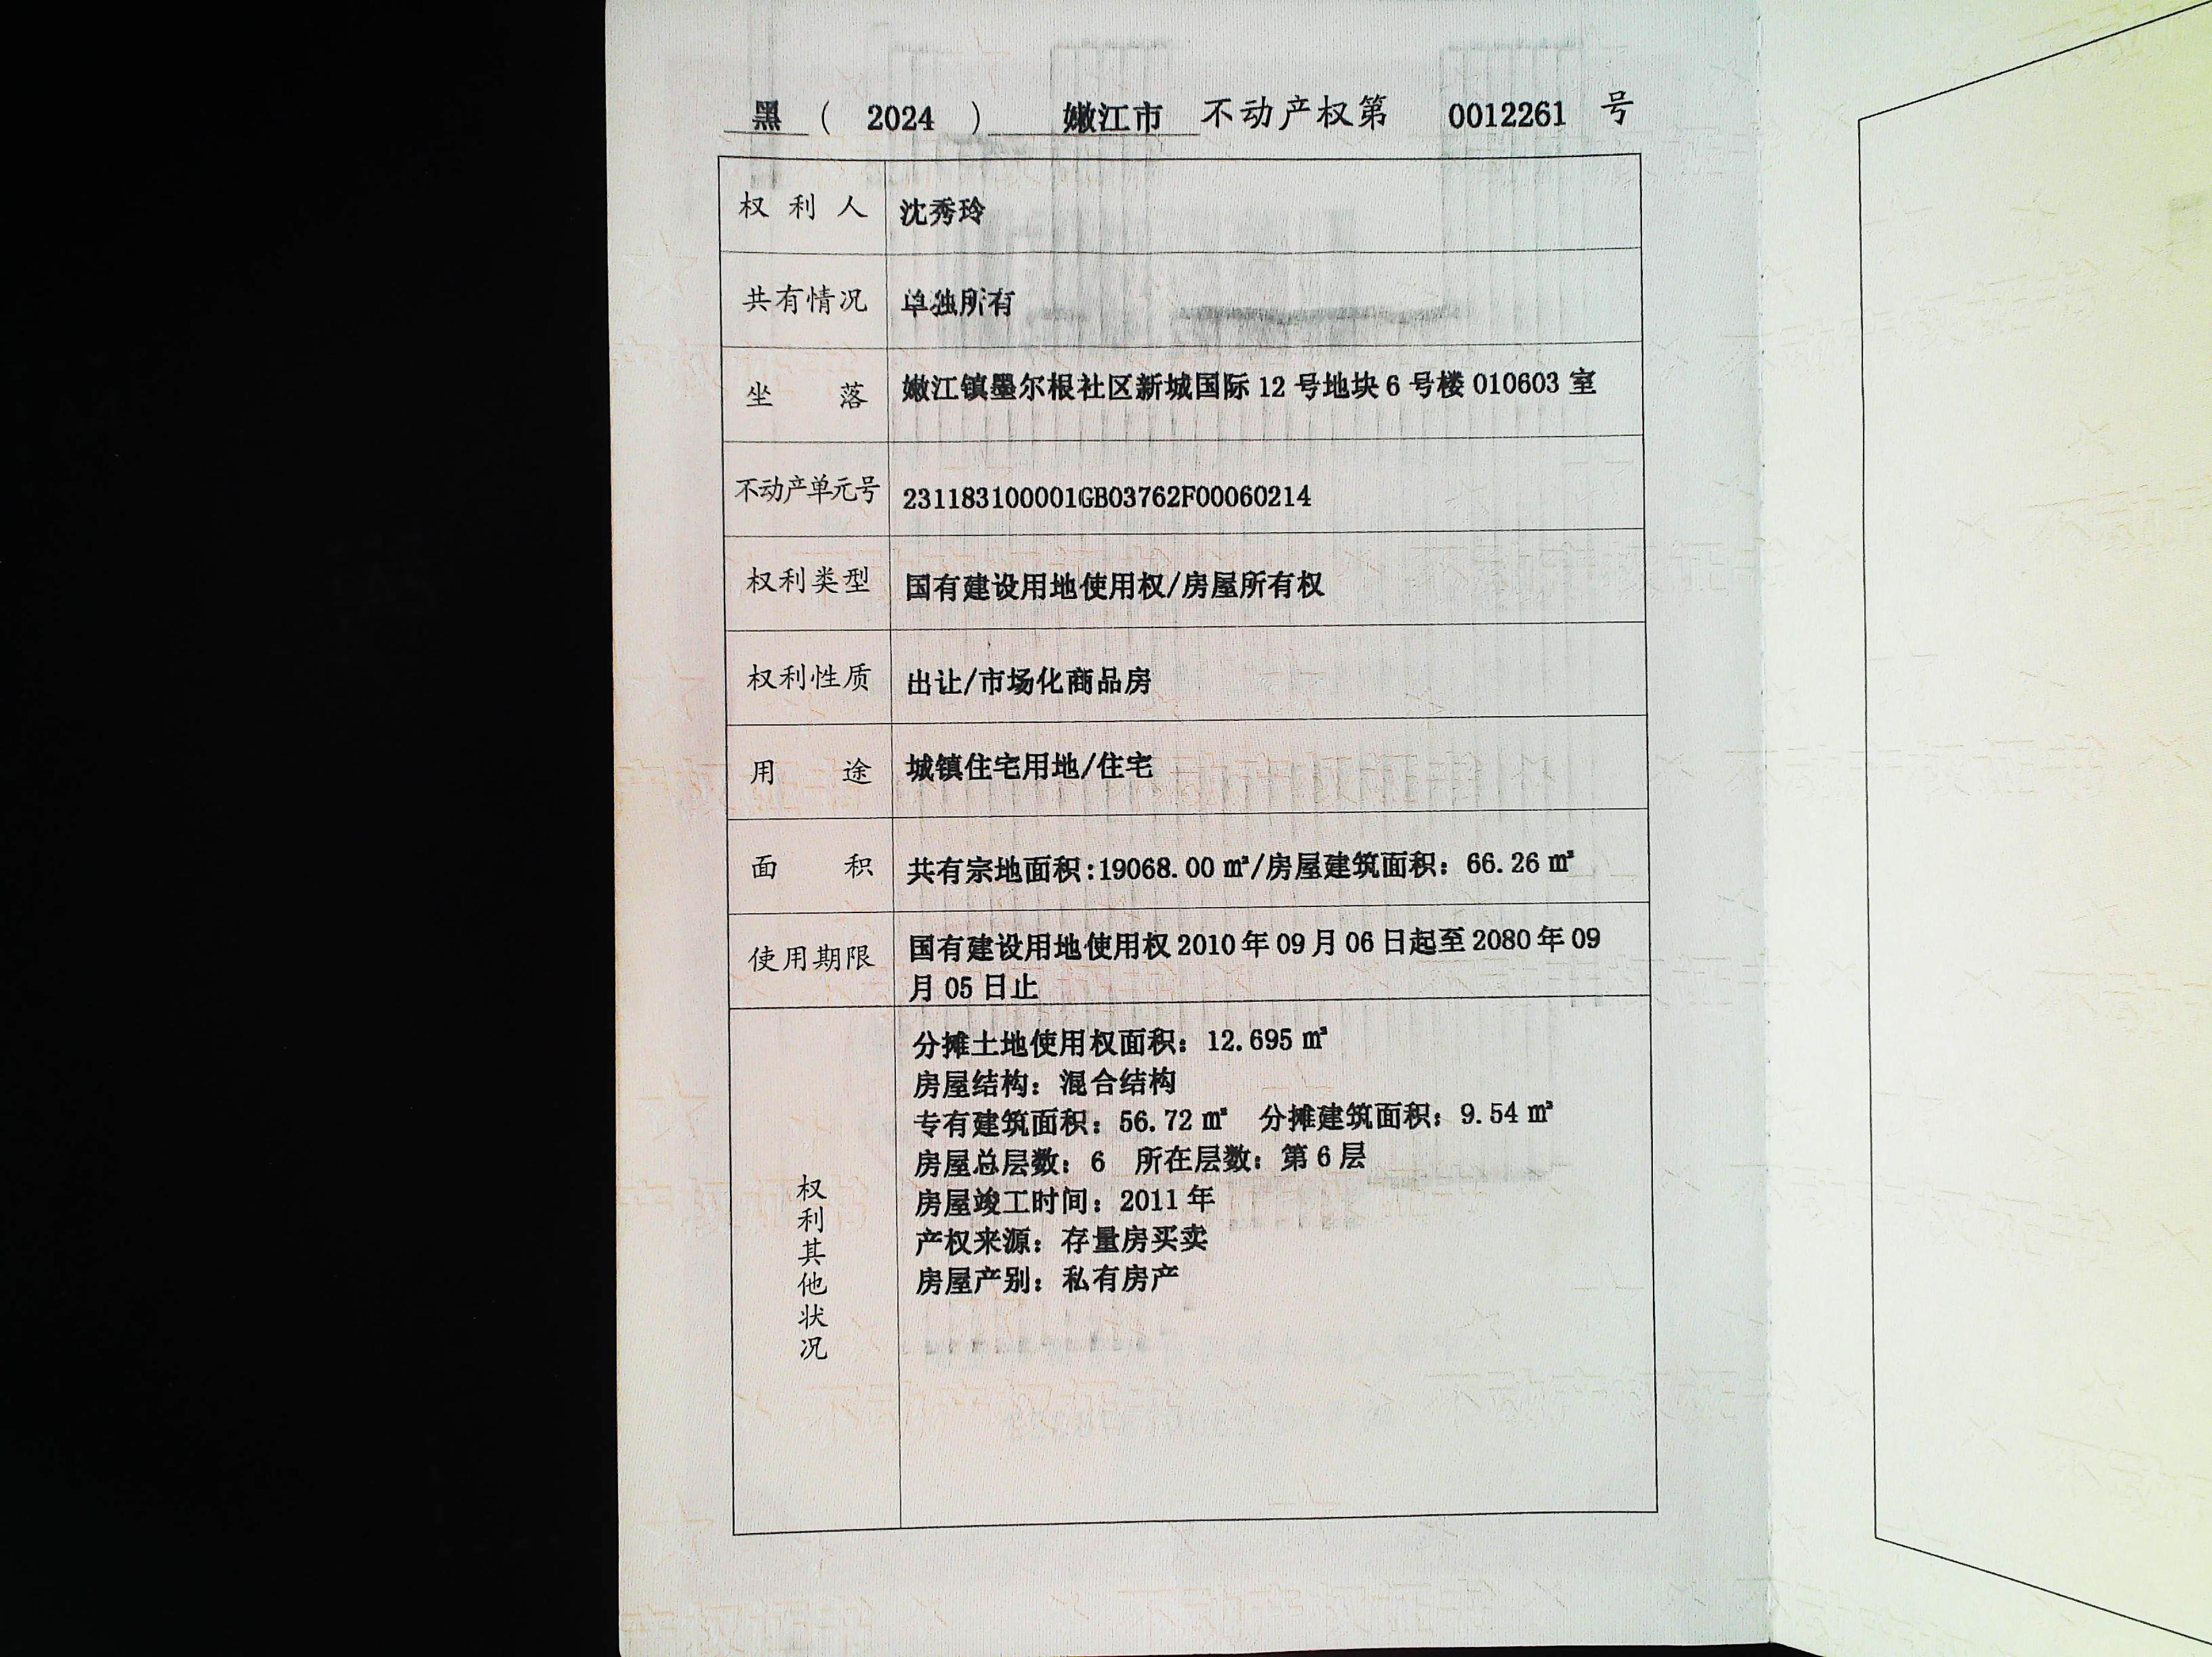 黑 ( 2024 ) 嫩江市 不动产权第 0012261 号
权利人 沈秀玲
共有情况 单独所有
坐落 嫩江镇墨尔根社区新城国际 12 号地块 6 号楼 010603 室
不动产单元号 231183100001GB03762F00060214
权利类型 国有建设用地使用权/房屋所有权
权利性质 出让/市场化商品房
用途 城镇住宅用地/住宅
面积 共有宗地面积:19068.00 ㎡/房屋建筑面积: 66.26 ㎡
使用期限 国有建设用地使用权 2010 年 09 月 06 日起至 2080 年 09
月 05 日止
权利其他状况
分摊土地使用权面积: 12.695 ㎡
房屋结构: 混合结构
专有建筑面积: 56.72 ㎡ 分摊建筑面积: 9.54 ㎡
房屋总层数: 6 所在层数: 第 6 层
房屋竣工时间: 2011 年
产权来源: 存量房买卖
房屋产别: 私有房产